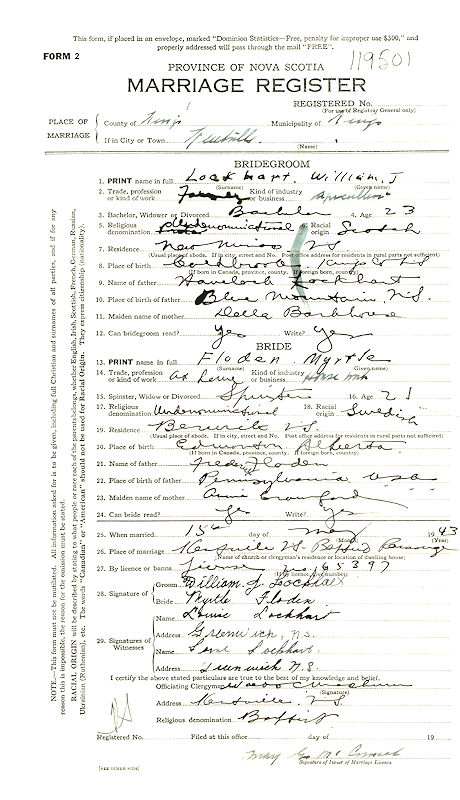 This form, if placed in an envelope, marked "Dominion Statistics—Free, penalty for improper use $300," and
properly addressed will pass through the mail "FREE".
FORM 2
119501
PROVINCE OF NOVA SCOTIA
MARRIAGE REGISTER
REGISTERED No.
(For use of Registrar General only)
PLACE OF MARRIAGE
County of Kings Municipality of Kings
If in City or Town Kentville
(Name)
BRIDEGROOM
1. PRINT name in full Lockhart William. J
(Surname) (Given name)
2. Trade, profession or kind of work Kind of industry or business
3. Bachelor, Widower or Divorced Bachelor 4. Age 23
5. Religious denomination Undenominational 6. Racial origin Scotch
7. Residence New Minas NS
(Usual place of abode. If in city, street and No. Post office address for residents in rural parts not sufficient)
8. Place of birth Kings Co NS
(If born in Canada, province, county. If foreign born, country)
9. Name of father Havelock Lockhart
10. Place of birth of father Blue Mountain, N.S.
11. Maiden name of mother Della Barkhouse
12. Can bridegroom read? Yes Write? Yes
BRIDE
13. PRINT name in full Floden Myrtle
(Surname) (Given name)
14. Trade, profession or kind of work at Home Kind of industry or business House work
15. Spinster, Widow or Divorced Spinster 16. Age 21
17. Religious denomination Undenominational 18. Racial origin Swedish
19. Residence Berwick NS.
(Usual place of abode. If in city, street and No. Post office address for residents in rural parts not sufficient)
20. Place of birth Edmonton Alberta
(If born in Canada, province, county. If foreign born, country)
21. Name of father Floden
22. Place of birth of father Pennsylvania USA
23. Maiden name of mother Annie Crawford
24. Can bride read? Yes Write? Yes
25. When married 15th day of May 1943
(Month) (Year)
26. Place of marriage Kentville NS Baptist Parsonage
(Name of church or clergyman's residence or location of dwelling house)
27. By licence or banns License No. 165397
(If by licence give number)
28. Signature of
Groom William J. Lockhart
Bride Myrtle Floden
29. Signatures of Witnesses
Name Louise Lockhart
Address Greenwich, N.S.
Name Lockhart
Address Greenwich N.S.
I certify the above stated particulars are true to the best of my knowledge and belief.
Officiating Clergyman
(Signature)
Address Kentville, N.S.
Religious denomination Baptist
Registered No. Filed at this office day of 19
May G. McCormack
Signature of Issuer of Marriage Licence
[SEE OTHER SIDE]
NOTE.—This form must not be mutilated. All information asked for is to be given, including full Christian and surnames of all parties, and if for any
reason this is impossible, the reason for the omission must be stated.
RACIAL ORIGIN will be described by stating to what people or race each of the parents belongs, whether English, Irish, Scottish, French, German, Russian,
Ukrainian (Ruthenian), etc. The words "Canadian" or "American" should not be used for Racial Origin. They express citizenship (nationality).